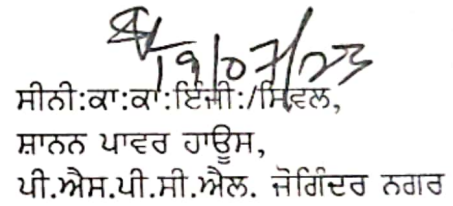 19/07/23
ਸੀਨੀ:ਕਾ:ਕਾ:ਇੰਜੀ:/ਸਿਵਲ,
ਸ਼ਾਨਨ ਪਾਵਰ ਹਾਊਸ,
ਪੀ.ਐਸ.ਪੀ.ਸੀ.ਐਲ. ਜੋਗਿੰਦਰ ਨਗਰ